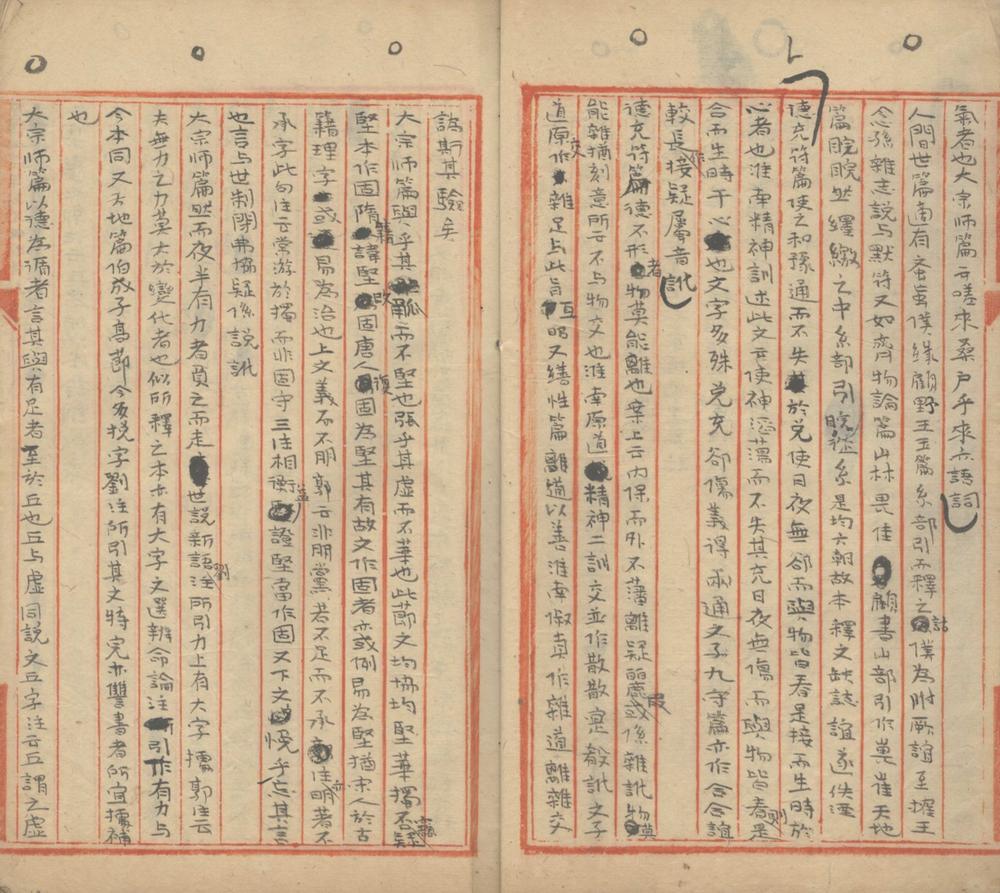 氣者也大宗師篇于嗟來桑戶乎來亦語詞
人間世篇適有蚉䖟僕緣顧野王玉篇糸部引而釋之詁僕為附厥誼至搉王
念孫雜志說与默符又如齊物論篇山林畏佳顧書山部引作嵔崔天地
篇睆睆然纆繳之中糸部引睆睆作糸是均六朝故本釋文缺誌誼遂佚湮
德充符篇使之和豫通而不失於兌使日夜無郤而與物皆春是接而生時於
心者也淮南精神訓述此文音使神滔蕩而不失其充日夜無傷而與物皆春則是
合而生時干心也文字多殊兌充郤傷義得兩通文子九守篇亦作合合誼
較長作接疑屬音訛
德充符篇德不形者物莫能離也案上云内保而外不蕩離疑麗或係雜訛物莫
能雜猶刻意所云不与物交也淮南原道精神二訓交並作散散寔殽訛文子
道原作雜足与此旨互明又繕性篇離道以善淮南俶真作雜道離雜交
譌斯其驗矣
大宗師篇與乎其觚而不堅也張乎其虛而不華也此節之文均協均堅華獨不諧疑
堅本作固隋籍諱堅改固唐人復固為堅其有故文作固者亦或例易為堅猶宋人於古
籍理字或易為治也上文義而不朋郭云非朋黨若不足而不承注亦明著不
承字此句注云常游於獨而非固守三注相衡益證堅當作固又下文悗乎忘其言
也言与世制閉弗協疑係說訛
大宗師篇然而夜半有力者負之而走世說新語劉注所引力上有大字攟郭注云
夫無力之力莫大於變化者也似所釋之本亦有大字文選辨命論注引作有力与
今本同又天地篇伯成子高節今多挩字劉注所引其文特完亦讐書者所宜攟補
也
大宗師篇以德為循者言其與有足者至於丘也丘与虛同說文丘字注云丘謂之虛